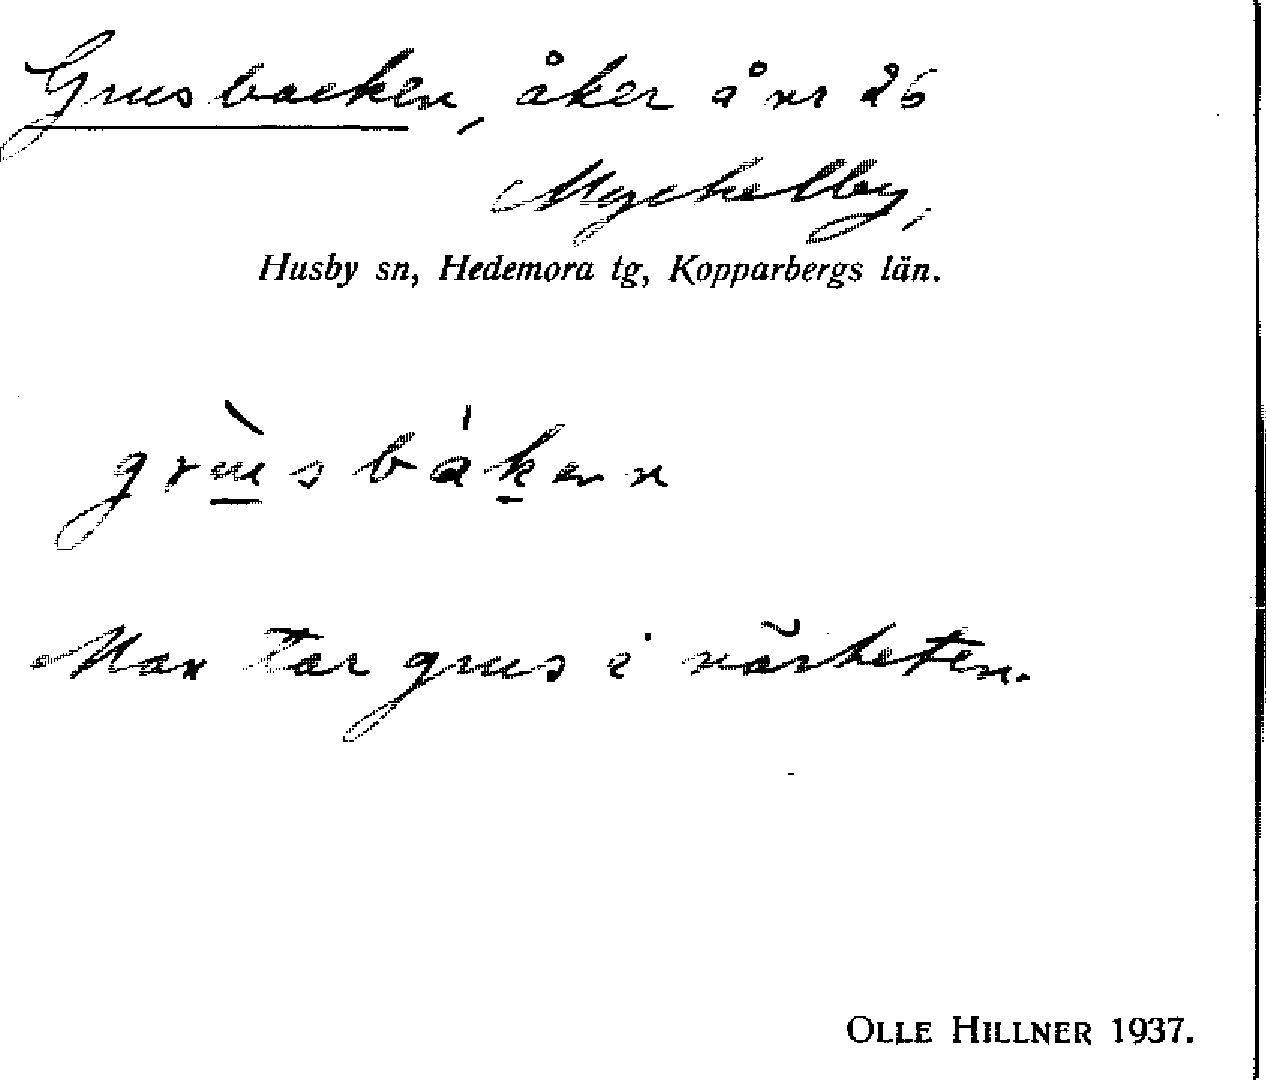 Grusbacken, åker å nr 26
Myckelby,
Husby sn, Hedemora tg, Kopparbergs län.
grùsbákən
Man tar grus i närheten.
OLLE HILLNER 1937.